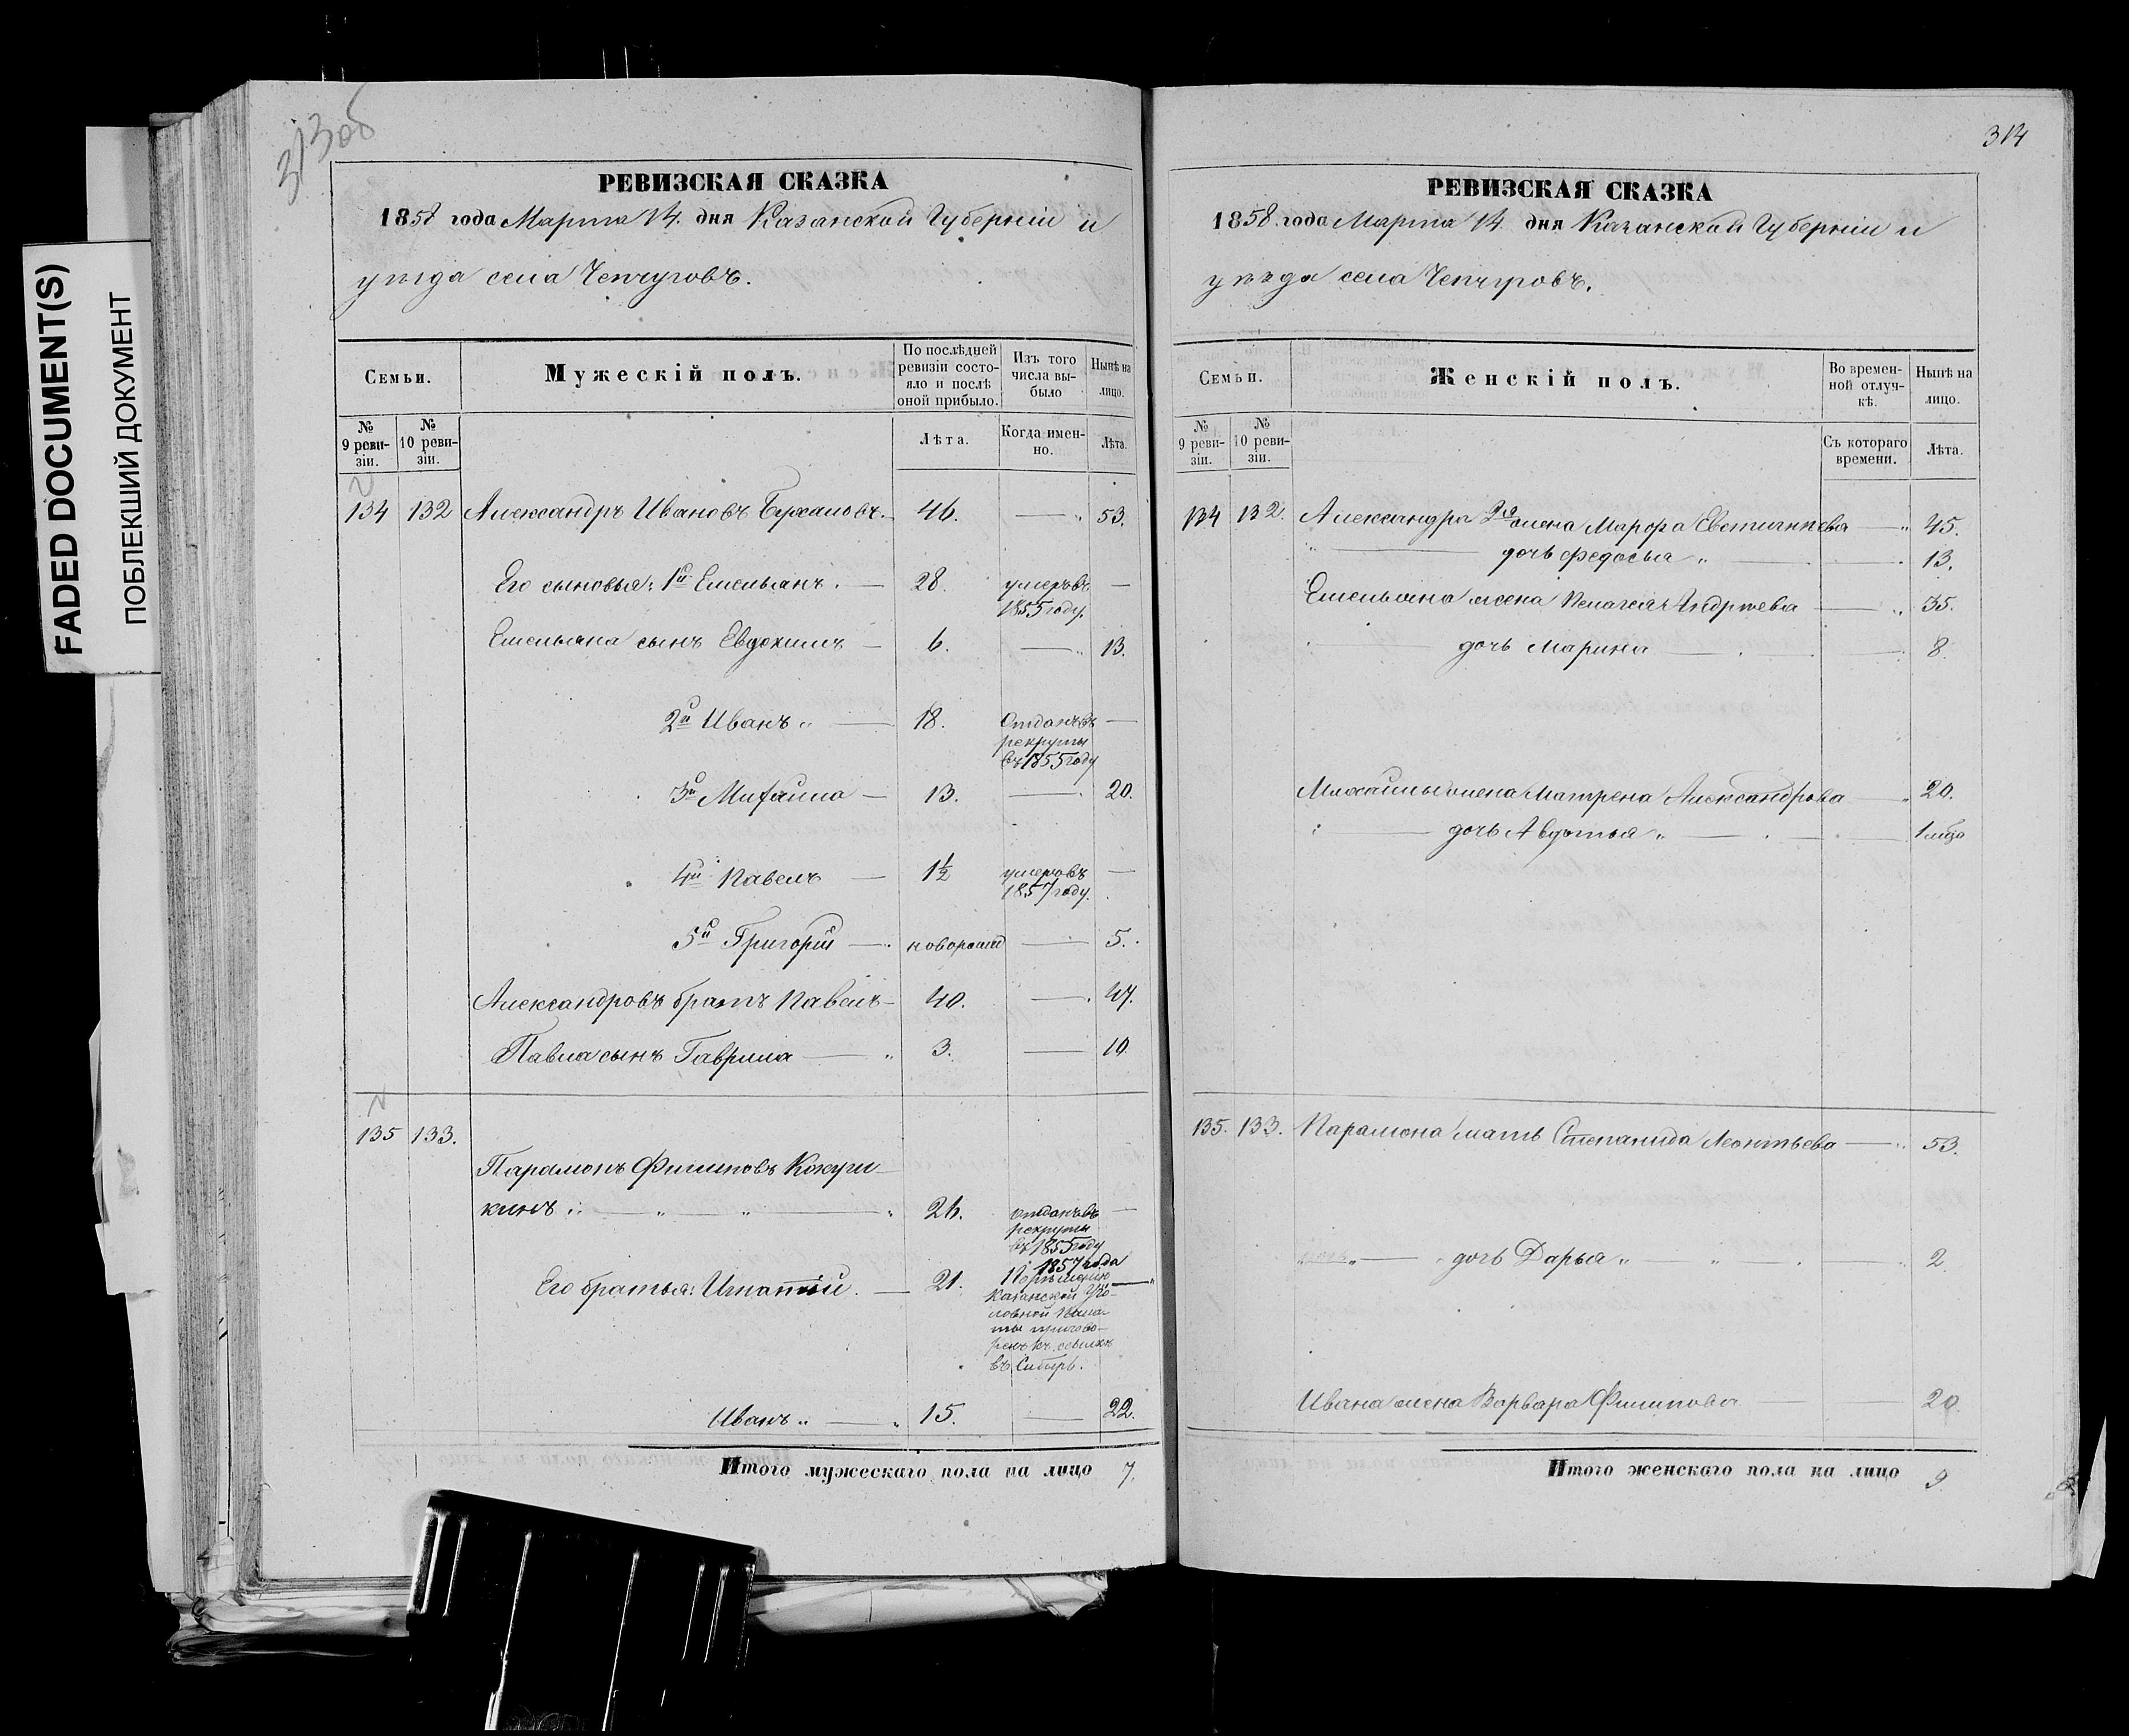 FADED DOCUMENT(S)
ПОБЛЕКШИЙ ДОКУМЕНТ
313 об
РЕВИЗСКАЯ СКАЗКА
1858 года Марта 14. дня Казанской Губерніи и
уѣзда села Чепчуговъ.
Семьи.
Мужескій полъ.
По послѣдней ревизіи состояло и послѣ оной прибыло.
Изъ того числа выбыло
Нынѣ на лицо.
№ 9 ревизіи.
№ 10 ревизіи.
Лѣта.
Когда именно.
Лѣта.
134 132 Александръ Ивановъ 46. — 53.
Его сыновья: 1й Емельянъ. — 28. умеръ въ 1855 году. —
Емельяна сынъ Евдокимъ — 6. — 13.
2й Иванъ — 18. Отданъ въ рекруты въ 1855 году —
3й Михайла — 13. — 20.
4й Павелъ — 1½ умеръ въ 1857 году. —
5й Григорій — новорожд — 5.
Александровъ братъ Павелъ — 40. — 47.
Павла сынъ Гаврила — 3. — 10.
135 133.
Парамонъ Филиповъ
кинъ — 26. отданъ въ рекруты въ 1855 году —
Его братья: Игнатій. — 21. 1857 года По рѣшенію Казанской Уголовной Палаты приговоренъ къ ссылкѣ въ Сибирь. —
Иванъ — 15. — 22.
Итого мужескаго пола на лицо 7.
314
РЕВИЗСКАЯ СКАЗКА
1858. года Марта 14 дня Казанской Губерніи и
уѣзда села Чепчуговъ.
Семьи.
Женскій полъ.
Во временной отлучкѣ.
Нынѣ на лицо.
№ 9 ревизіи.
№ 10 ревизіи.
Съ котораго времени.
Лѣта.
134 132. Александра 2я жена Марфа Евстигнѣева — 45.
— дочь Федосья — 13.
Емельяна жена Пелагея Андреева — 35.
— дочь Марина — 8.
Михайлы жена Матрена Александрова — 20.
— дочь Авдотья — 1 мѣс
135. 133. Парамона мать Степанида Леонтьева — 53.
— дочь Дарья — 2.
Ивана жена Варвара Филипова — 20.
Итого женскаго пола на лицо 9